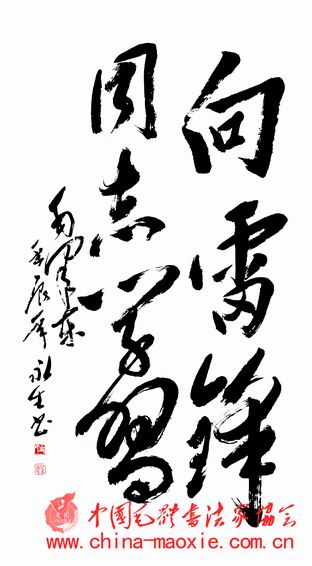 向雷锋
同志学习
毛泽东
永生书
中国毛体书法家协会
www.china-maoxie.com.cn